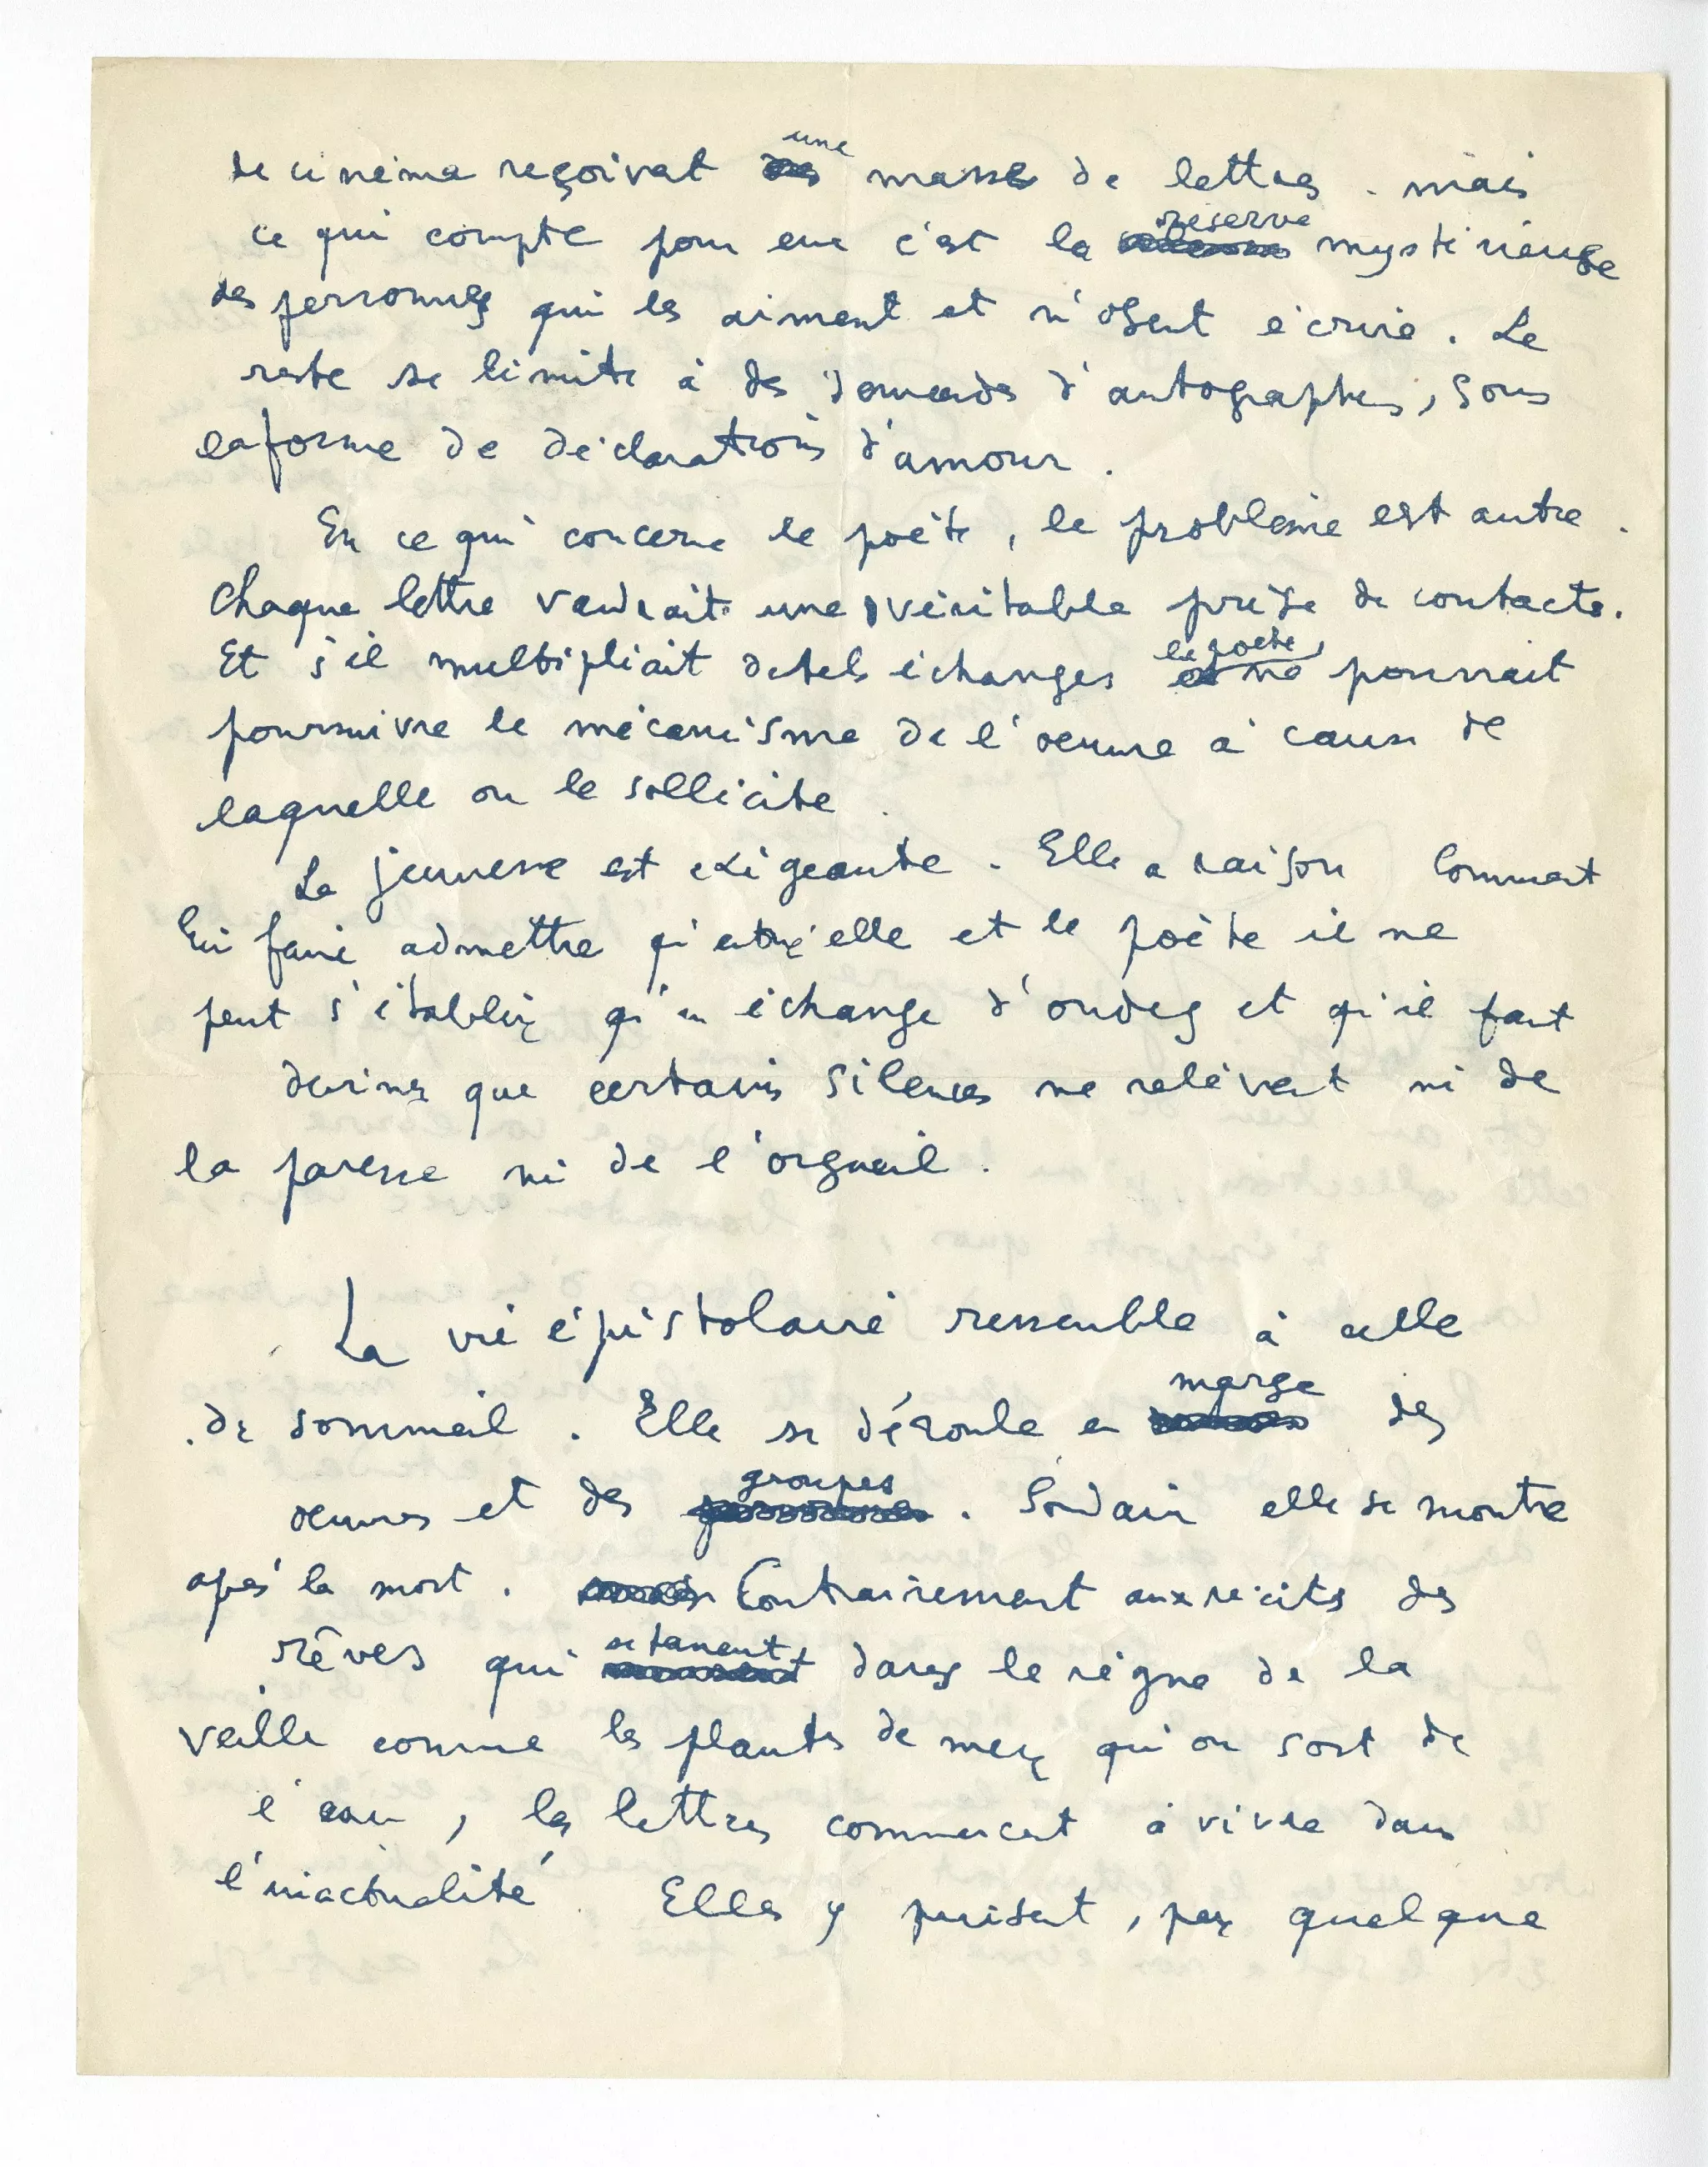 de cinéma reçoivent une masse de lettres. mais
ce qui compte pour eux c'est la réserve mystérieuse
des personnes qui les aiment et n'osent écrire. Le
reste se limite à des demandes d'autographes, sous
la forme de déclarations d'amour.
En ce qui concerne le poète, le problème est autre.
Chaque lettre vaudrait une véritable prise de contacts.
Et s'il multipliait de tels échanges le poète, ne pourrait
poursuivre le mécanisme de l'œuvre à cause de
laquelle on le sollicite.
La jeunesse est exigeante. Elle a raison Comment
lui faire admettre qu'entre elle et le poète il ne
peut s'établir qu'un échange d'ondes et qu'il faut
deviner que certains silences ne relèvent ni de
la paresse ni de l'orgueil.
La vie épistolaire ressemble à celle
de sommeil. Elle se déroule en marge des
œuvres et des groupes. Soudain elle se montre
après la mort. Contrairement aux récits des
rêves qui se fanent dans le règne de la
veille comme les plantes de mer qu'on sort de
l'eau, les lettres commencent à vivre dans
l'inactualité. Elles y puisent, par quelque